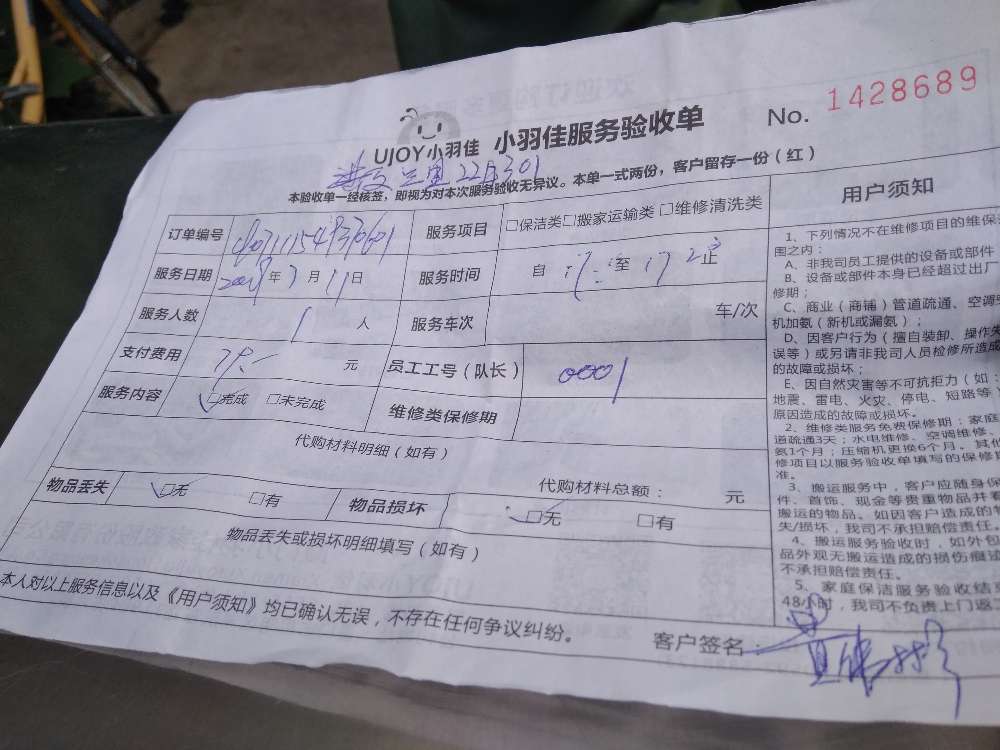 No. 1428689
UJOY小羽佳 小羽佳服务验收单
22日301
本验收单一经核签，即视为对本次服务验收无异议。本单一式两份，客户留存一份（红）
订单编号
服务项目 □保洁类□搬家运输类□维修清洗类
服务日期 年7月11日
服务时间 自 至 止
服务人数 1 人
服务车次 车/次
支付费用 元
员工工号（队长） 0001
服务内容 □完成 □未完成
维修类保修期
代购材料明细（如有）
代购材料总额： 元
物品丢失 □无 □有
物品损坏 □无 □有
物品丢失或损坏明细填写（如有）
本人对以上服务信息以及《用户须知》均已确认无误，不存在任何争议纠纷。
客户签名：
用户须知
1、下列情况不在维修项目的维保
围之内：
A、非我司员工提供的设备或部件
B、设备或部件本身已经超过出厂
修期；
C、商业（商铺）管道疏通、空调
机加氨（新机或漏氨）；
D、因客户行为（擅自装卸、操作
误等）或另请非我司人员检修所造成
的故障或损坏；
E、因自然灾害等不可抗拒力（如：
地震、雷电、火灾、停电、短路等
原因造成的故障或损坏。
2、维修类服务免费保修期：家庭
道疏通3天；水电维修、空调维修、
氨1个月；压缩机更换6个月。其他
修项目以服务验收单填写的保修
准。
3、搬运服务中，客户应随身保
件、首饰、现金等贵重物品并
搬运的物品。如因客户造成的
失/损坏，我司不承担赔偿责任。
4、搬运服务验收时，如外包
品外观无搬运造成的损伤痕
不承担赔偿责任。
5、家庭保洁服务验收结
48小时，我司不负责上门返